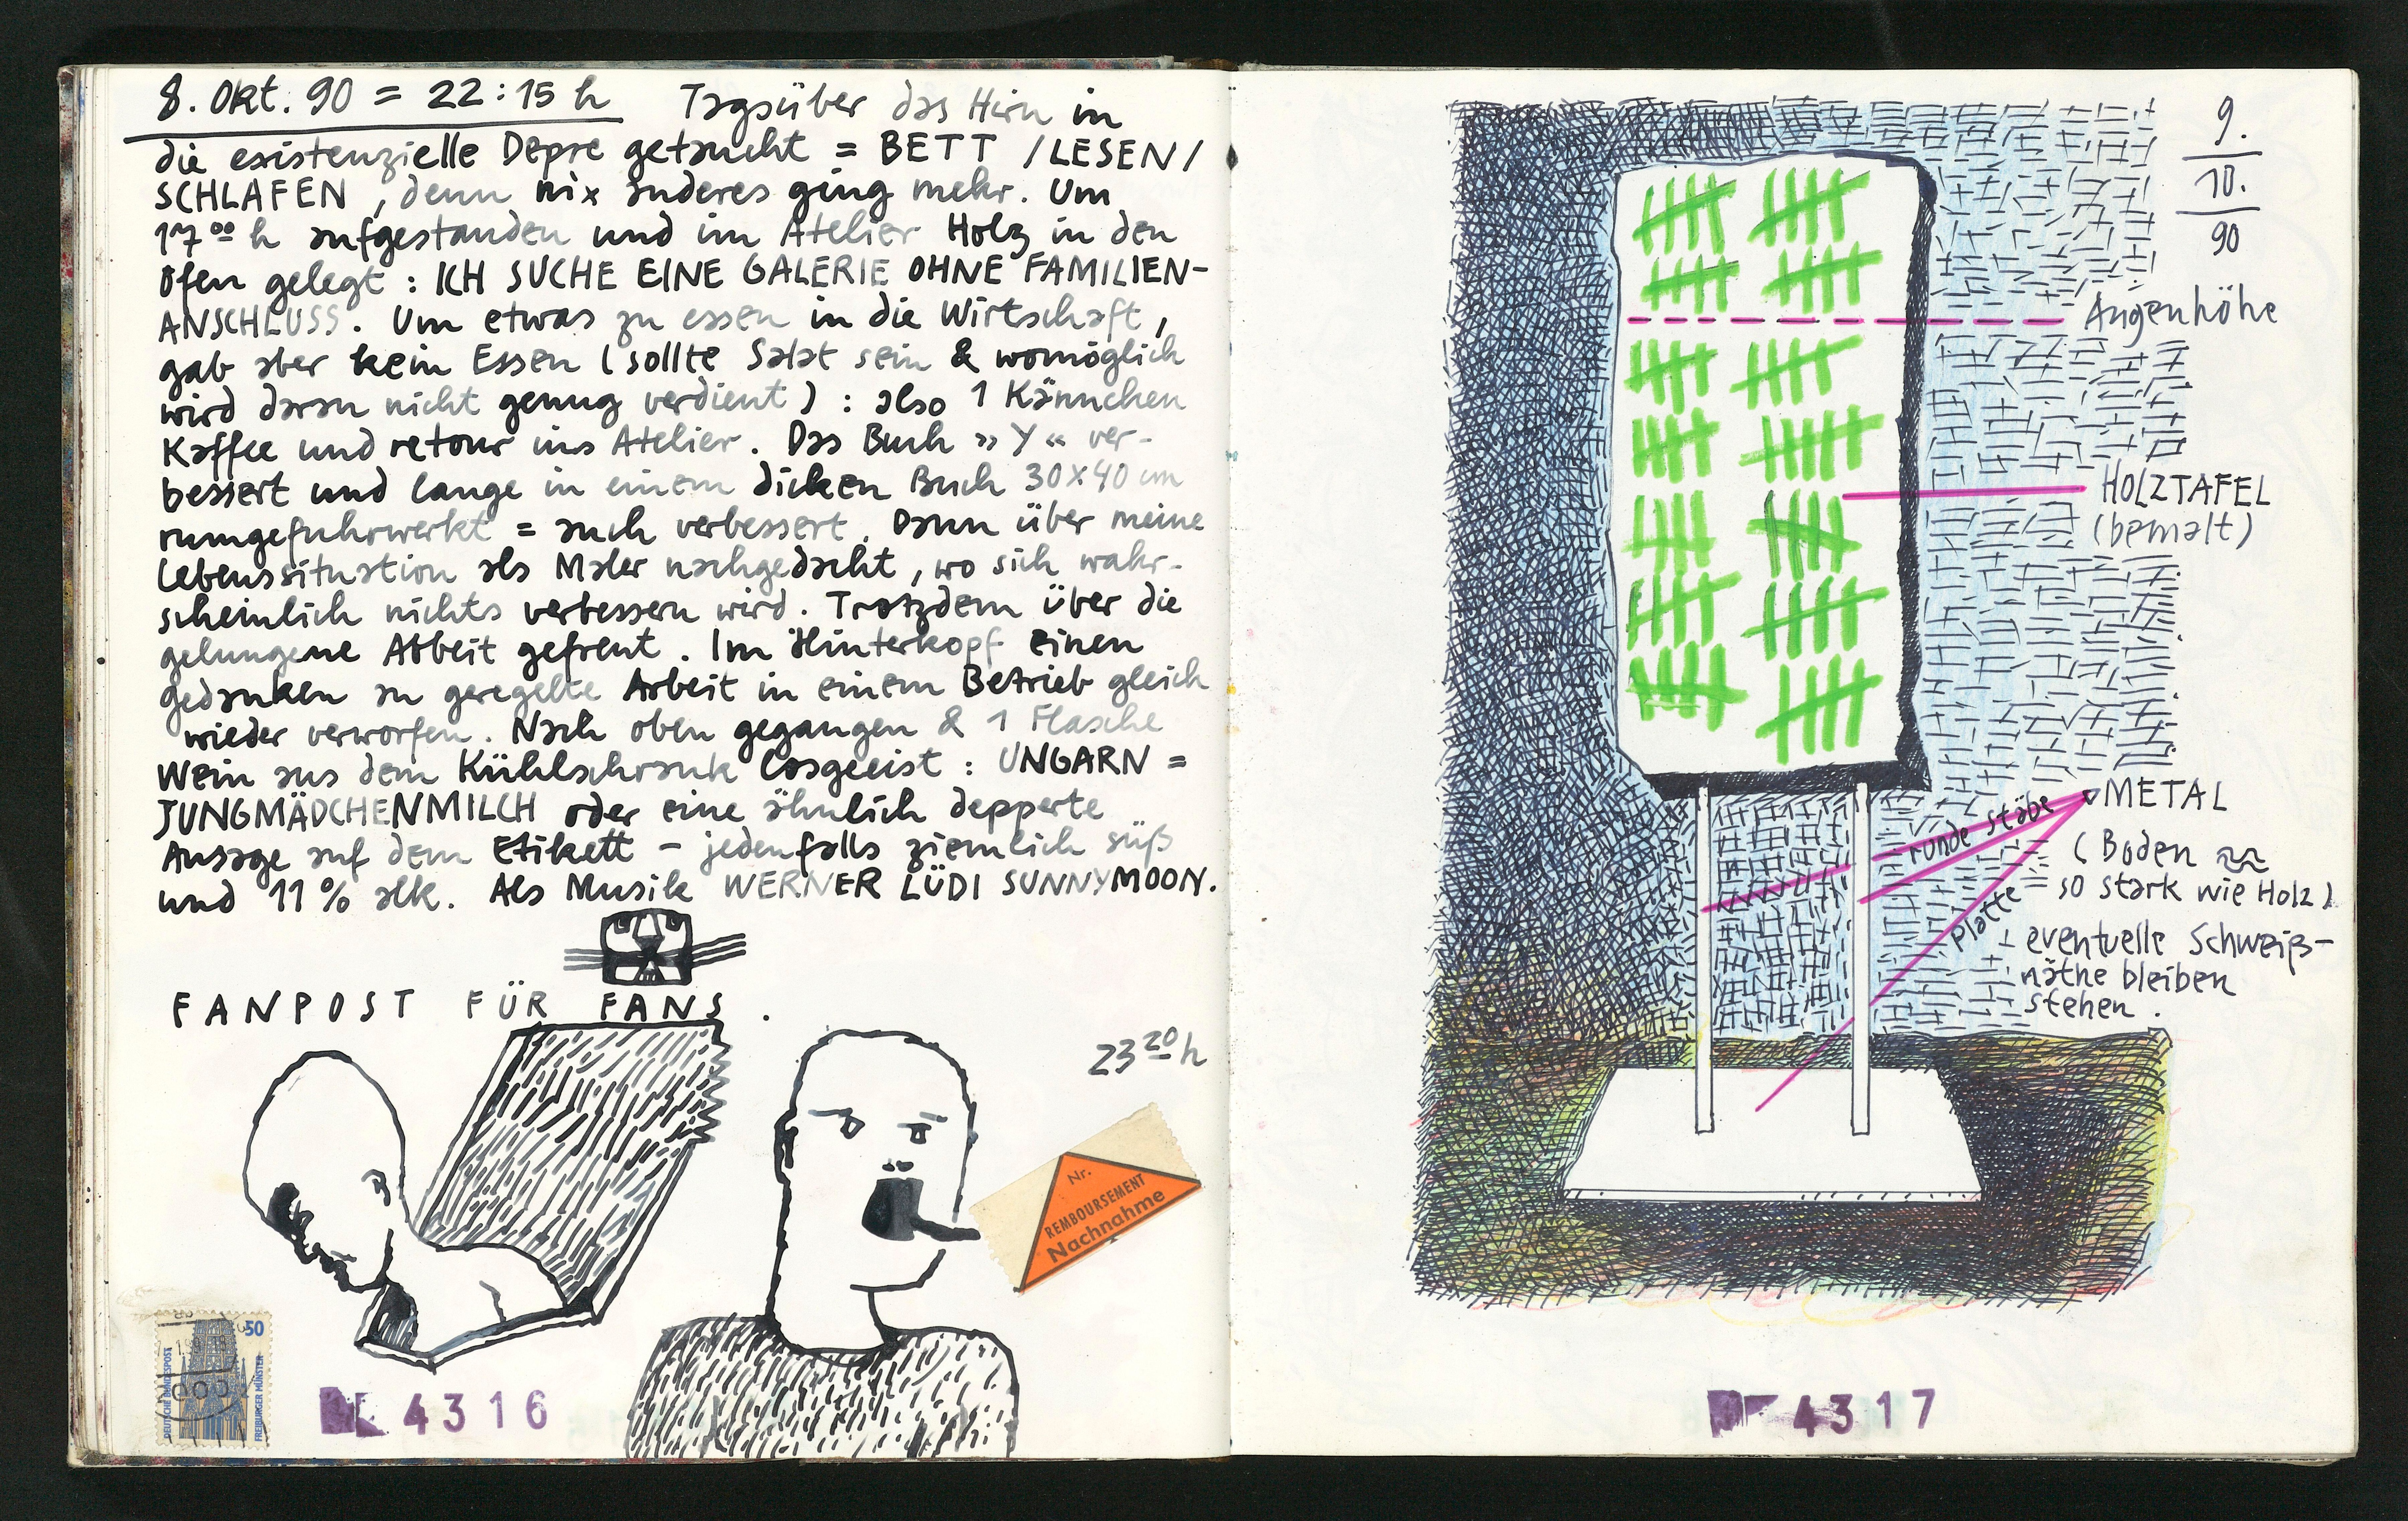 8. Okt. 90 = 22:15 h Tagsüber das Hirn in
die existenzielle Depre getaucht = BETT /LESEN/
SCHLAFEN, denn nix anderes ging mehr. Um
17 00 h aufgestanden und im Atelier Holz in den
Ofen gelegt: ICH SUCHE EINE GALERIE OHNE FAMILIEN-
ANSCHLUSS. Um etwas zu essen in die Wirtschaft,
gab aber kein Essen (sollte Salat sein & womöglich
wird daran nicht genug verdient): also 1 Kännchen
Kaffee und retour ins Atelier. Das Buch »Y« ver-
bessert und lange in einem dicken Buch 30x40 cm
rumgefuhrwerkt = auch verbessert. Dann über meine
Lebenssituation als Maler nachgedacht, wo sich wahr-
scheinlich nichts verbessern wird. Trotzdem über die
gelungene Arbeit gefreut. Im Hinterkopf einen
gedanken an geregelte Arbeit in einem Betrieb gleich
wieder verworfen. Nach oben gegangen & 1 Flasche
Wein aus dem Kühlschrank losgeeist: UNGARN =
JUNGMÄDCHENMILCH oder eine ähnlich depperte
Aussage auf dem Etikett - jedenfalls ziemlich süß
und 11% alk. Als Musik WERNER LÜDI SUNNYMOON.
FANPOST FÜR FANS.
23 20 h
Nr.
REMBOURSEMENT
Nachnahme
50
DEUTSCHE BUNDESPOST
FREIBURGER MÜNSTER
4316
9.
10.
90
Augenhöhe
HOLZTAFEL
(bemalt)
METAL
runde stäbe
(Boden ≈
so stark wie Holz)
platte
eventuelle Schweiß-
näthe bleiben
stehen.
4317